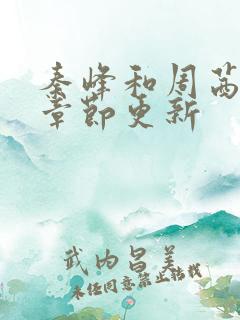 秦峰和周茜
章节更新
武内昌美
未经同意禁止转载